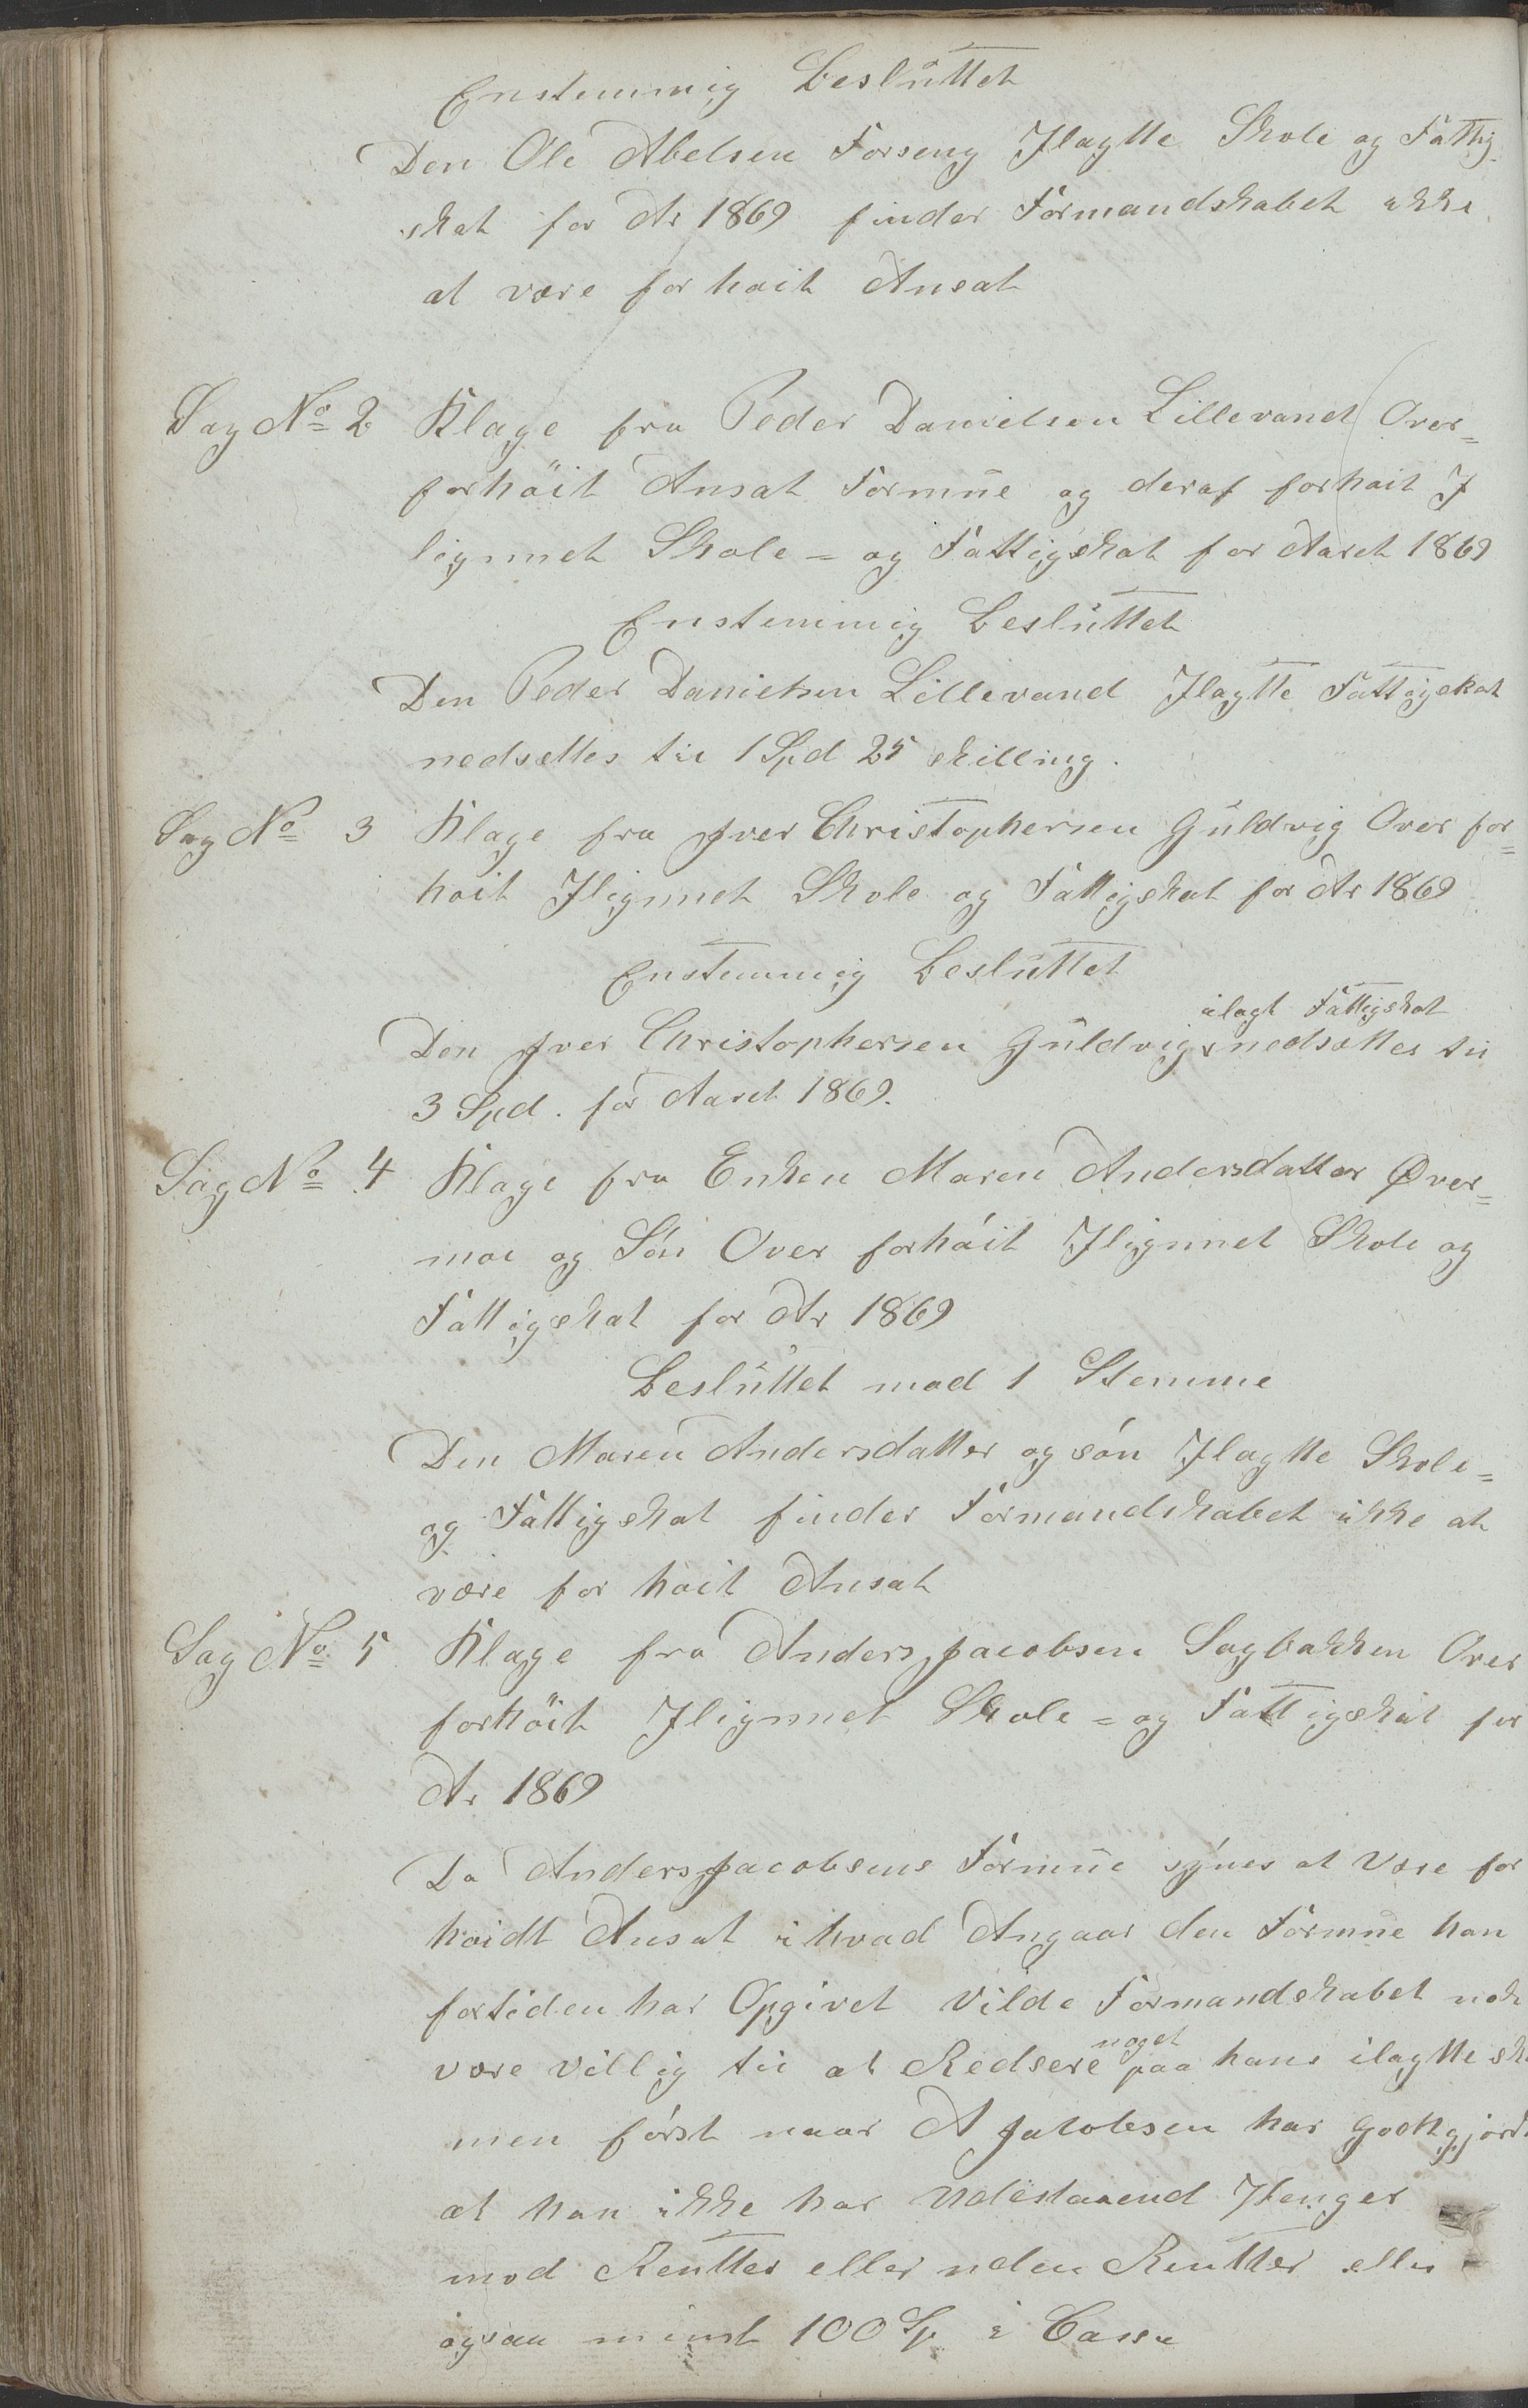 Enstemmig Besluttet
Den Ole Abelsen Forseng Ilagtte Skole og Fattig-
skat for Ar 1869 finder Formandskabet ikke
at være for høit Ansat
Sag No 2 Klage fra Peder Danielsen Lillevand Over=
forhöit Ansat Formue og deraf forhøit I
lignnet Skole = og Fattigskat for Aaret 1869
Enstemmig Besluttet
Den Peder Danielsen Lillevand Ilagtte Fattigskat
nedsettes til 1 Spd 25 skilling.
Sag No 3 Klage fra Iver Christophersen Guldvig Over for=
høit Ilignnet Skole og Fattigskat for Ar 1869
Enstemmig Besluttet
ilagt Fattigskat
Den Iver Christophersen Guldvig nedsættes til
3 Spd. for Aaret 1869.
Sag No 4 Klage fra Enken Maren Andersdatter Øver=
moe og Sön Over forhöit Ilignnet Skole og
Fattigskat for Ar 1869
Besluttet mod 1 Stemme
Den Maren Andersdatter og sön Ilagtte Skole=
og Fattigskat finder Formandskabet ikke at
være for høit Ansat
Sag No 5 Klage fra Anders Jacobsen Sagbakken Over
forhöit Ilignnet Skole = og Fattigskat for
Ar 1869
Da Anders Jacobsens Formue sýnes at Være for
høidt Ansat i hvad Angaar den Formue han
fortiden har Opgivet Vilde Formandskabet nok
være villig til at Redsere noget paa hans ilagtte sk
men först naar A Jacobsen har godtgjord
at han ikke har Udestaaend Penger
mod Rentter eller uden Rentter eller
ogsaa minst 100 Sp i Cassa